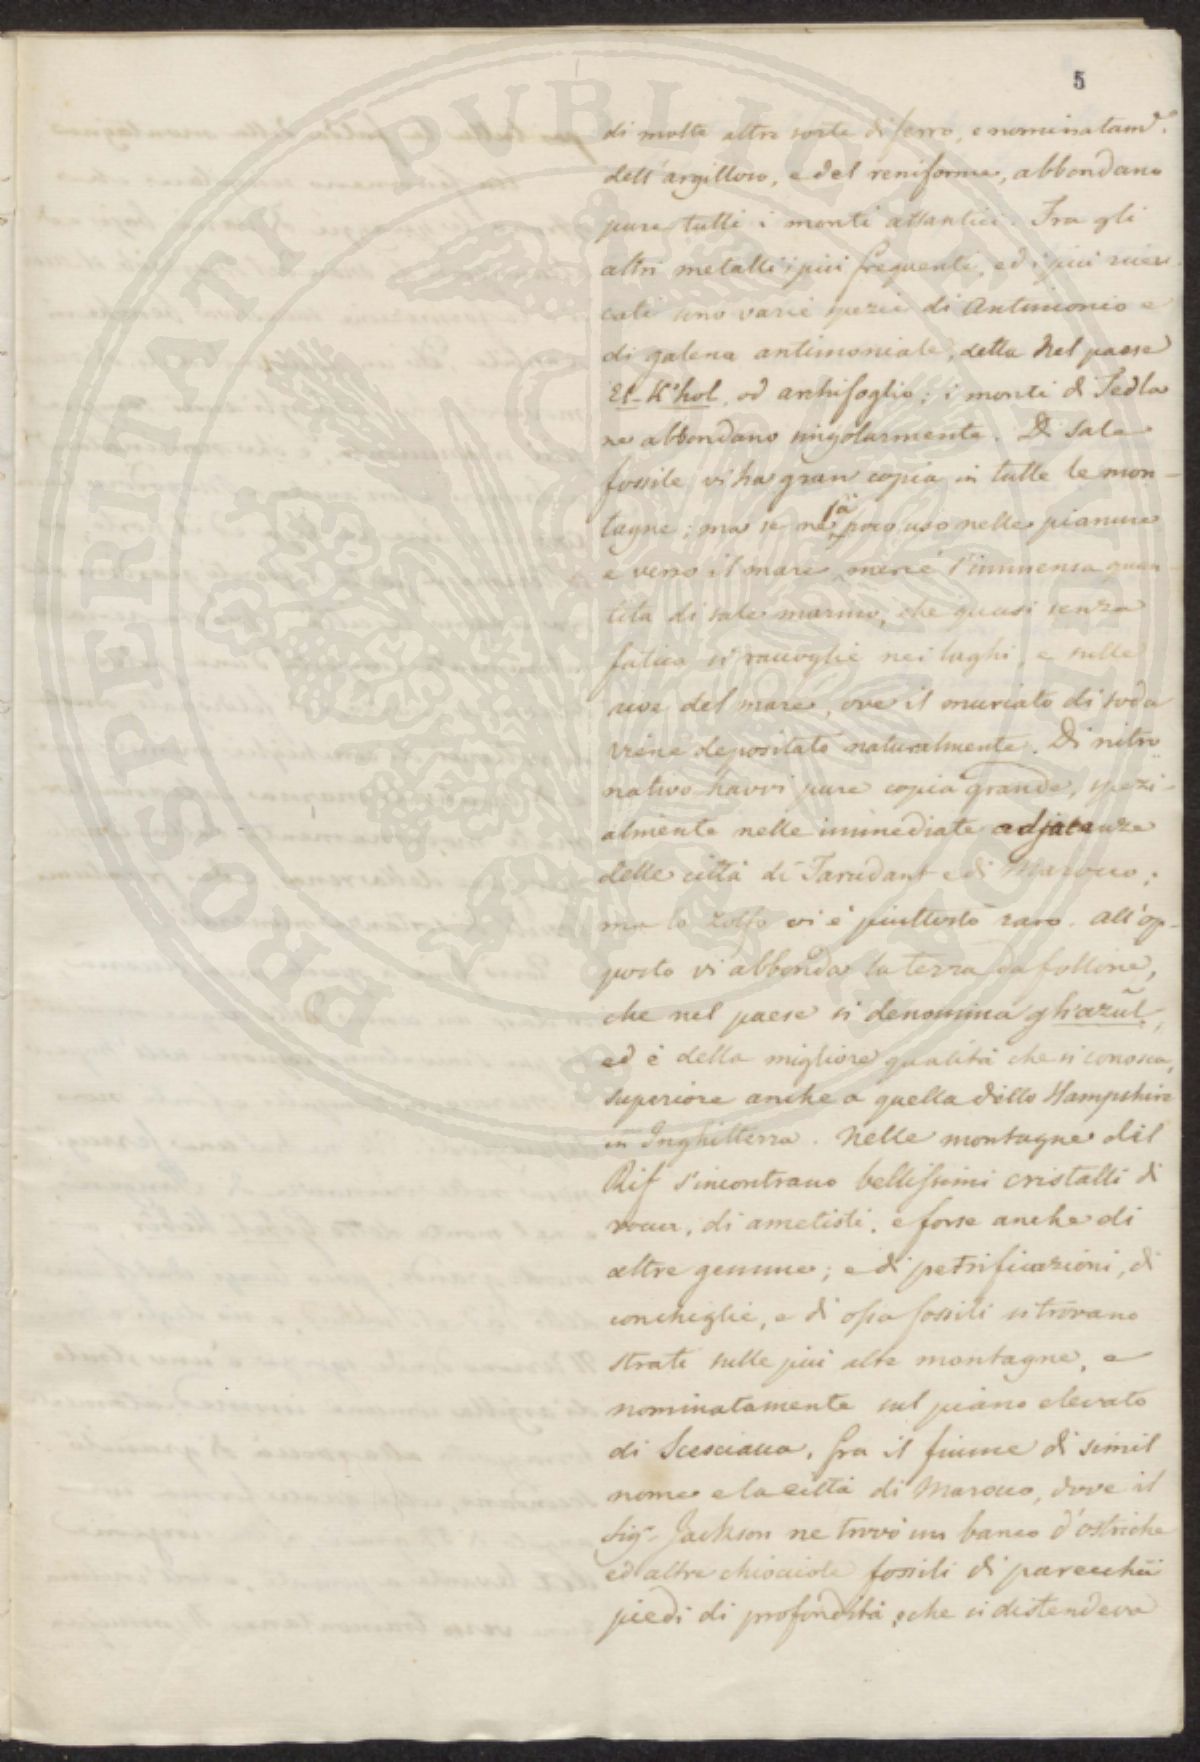 5
di molte altre sorte di ferro, e nominatamᵉ.
dell'argilloso, e del reniforme, abbondano
pure tutti i monti atlantici. Fra gli
altri metalli i più frequenti, ed i più ricer-
cati sono varie spezie di Antimonio e
di galena antimoniale, detta nel paese
El-K'hol, od archifoglio; i monti di Tedla
ne abbondano singolarmente. Di sale
fossile vi ha gran copia in tutte le mon-
tagne; ma se ne fa poco uso nelle pianure
e verso il mare, mercè l'immensa quan-
tità di sale marino, che quasi senza
fatica si raccoglie nei laghi, e sulle
rive del mare, ove il muriato di soda
viene depositato naturalmente. Di nitro
nativo havvi pure copia grande, spezi-
almente nelle immediate adjacenze
delle città di Tarudant e di Marocco;
ma lo zolfo vi è piuttosto raro. All'op-
posto vi abbonda la terra da follone,
che nel paese si denomina ghazūl,
ed è della migliore qualità che si conosca,
superiore anche a quella dello Hampshire
in Inghilterra. Nelle montagne del
Rif s'incontrano bellissimi cristalli di
rocca, di ametisti, e forse anche di
altre gemme; e di petrificazioni, di
conchiglie, e di ossa fossili si trovano
strati sulle più alte montagne, e
nominatamente sul piano elevato
di Scesciaua, fra il fiume di simil
nome e la città di Marocco, dove il
Sigʳ. Jackson ne trovò un banco d'ostriche
ed altre chiocciole fossili di parecchii
piedi di profondità, che si distendeva
PROSPERITATI PUBLICAE